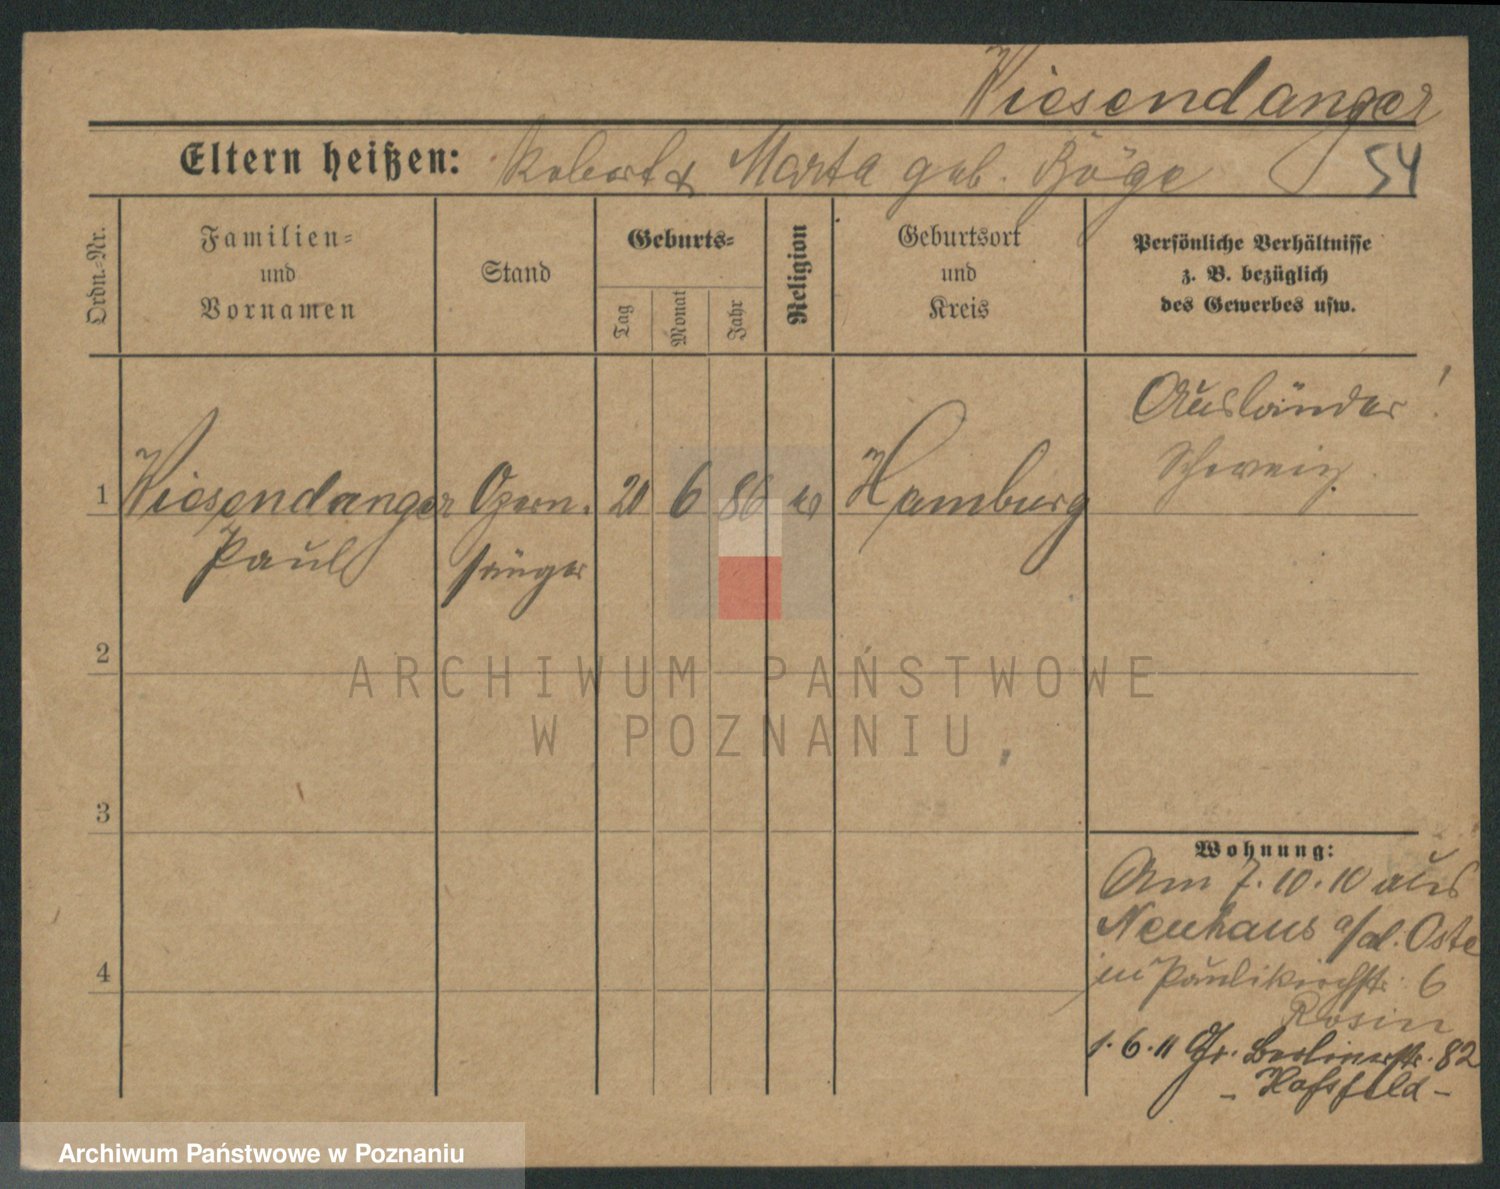 Wiesendanger
Eltern heißen: Robert & Marta geb. Böge
54
Ordn.-Nr.
Familien-
und
Vornamen
Stand
Geburts-
Tag
Monat
Jahr
Religion
Geburtsort
und
Kreis
Persönliche Verhältnisse
z. B. bezüglich
des Gewerbes usw.
Ausländer!
Schweiz.
1 Wiesendanger Opern- 20 6 86 Hamburg
Paul sänger
2
3
4
Wohnung:
Am 7.10.10 aus
Neuhaus a/d. Oste
in Paulikirchstr. 6
Rosin
1.6.11 Gr. Berlinerstr. 82
- Hofsfeld -
ARCHIWUM PAŃSTWOWE
W POZNANIU
Archiwum Państwowe w Poznaniu